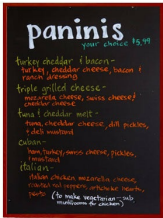 paninis
your choice $5.99
turkey cheddar & bacon -
turkey, cheddar cheese, bacon &
ranch dressing
triple grilled cheese -
mozarella cheese, swiss cheese &
cheddar cheese
tuna & cheddar melt -
tuna, cheddar cheese, dill pickles,
& deli mustard
cuban -
ham, turkey, swiss cheese, pickles,
& mustard
italian -
italian chicken mozarella cheese,
roasted red peppers, artichoke hearts,
pesto (to make vegetarian - sub
mushrooms for chicken)